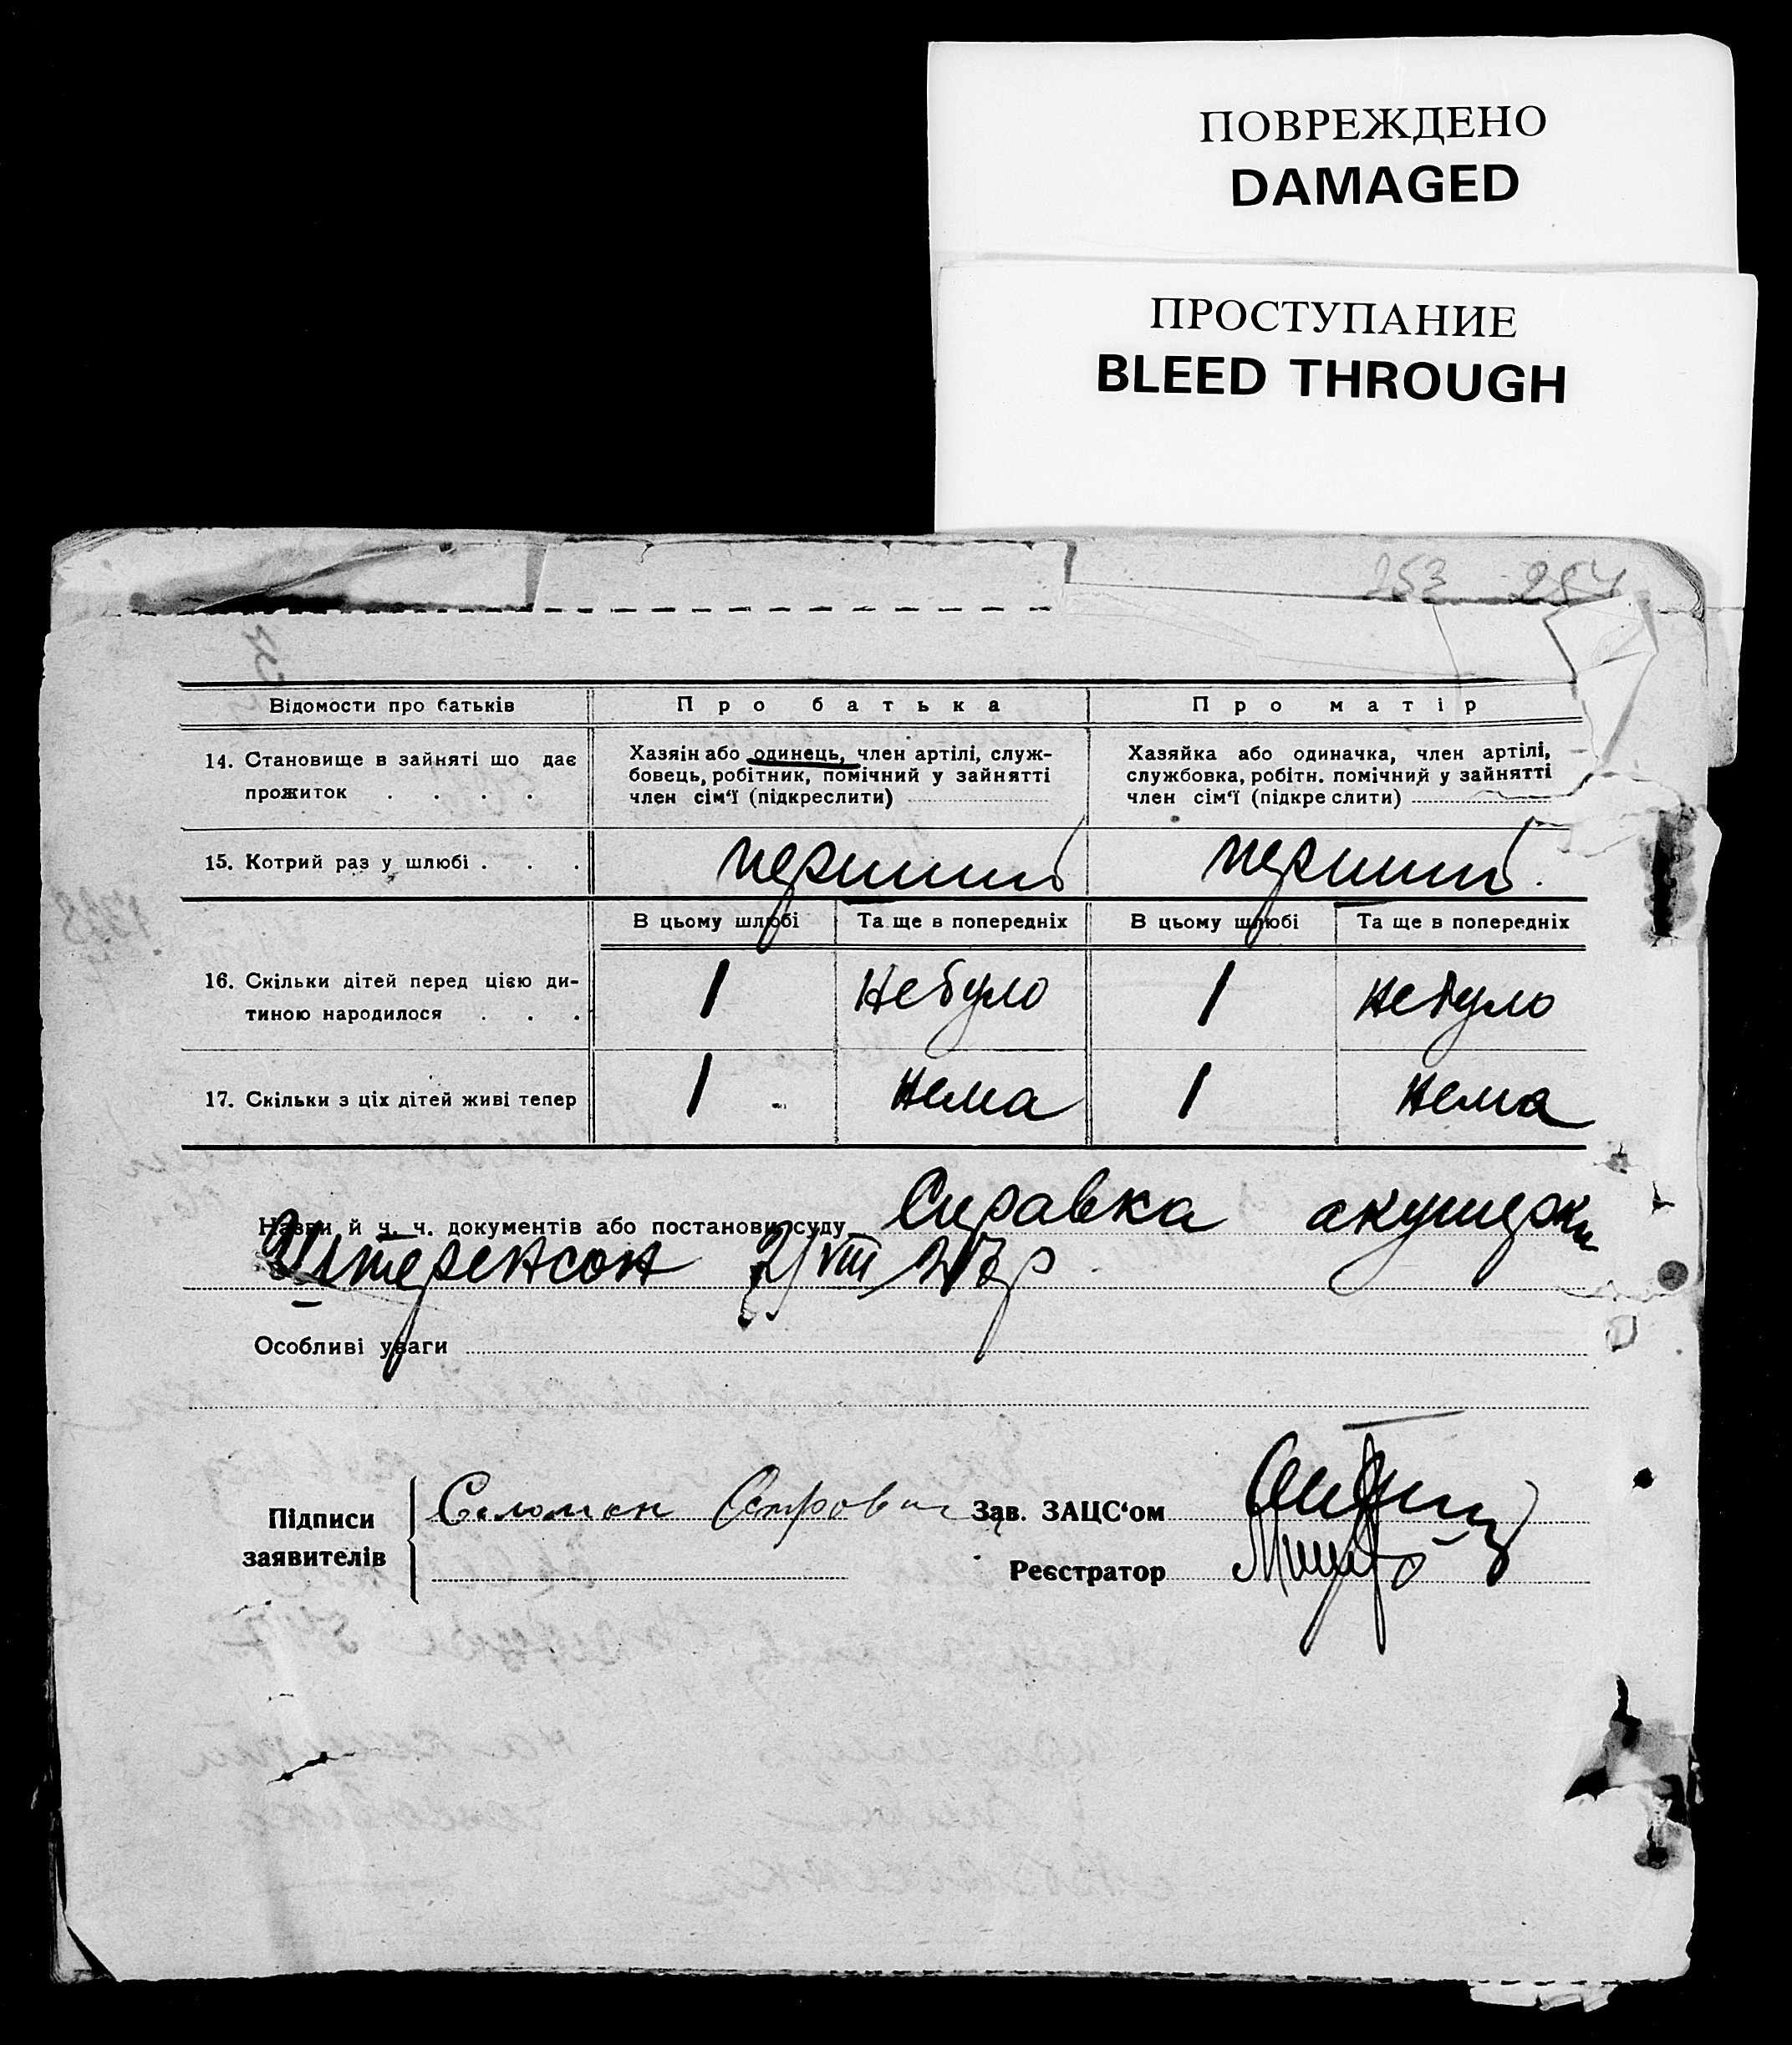 ПОВРЕЖДЕНО
DAMAGED
ПРОСТУПАНИЕ
BLEED THROUGH
253 254
Відомости про батьків Про батька Про матір
14. Становище в зайняті що дає прожиток . . . .
Хазяін або одинець, член артілі, служ-
бовець, робітник, помічний у зайнятті
член сім'ї (підкреслити)
Хазяйка або одиначка, член артілі,
службовка, робітн. помічний у зайнятті
член сім'ї (підкреслити)
15. Котрий раз у шлюбі . . . перший перший.
В цьому шлюбі Та ще в попередніх В цьому шлюбі Та ще в попередніх
16. Скільки дітей перед цією ди-
тиною народилося . . . 1 небуло 1 небуло
17. Скільки з ціх дітей живі тепер 1 нема 1 нема
Назви й ч. ч. документів або постанови суду Справка акушерки
VIII
Особливі уваги
Підписи
заявителів
Соломон Островс
Зав. ЗАЦС'ом
Реєстратор